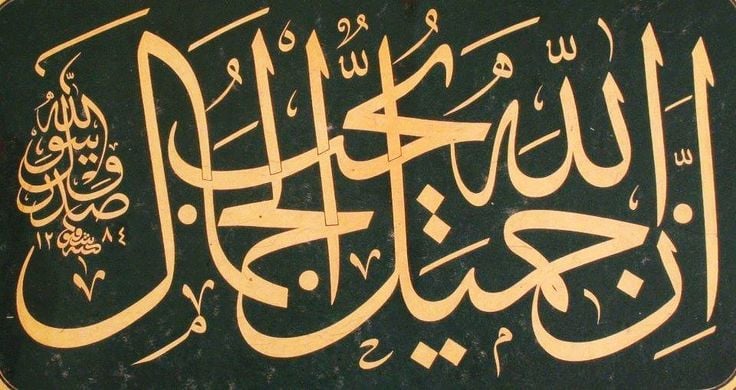 إِنَّ اللّٰهَ جَمِيلٌ يُحِبُّ الْجَمَالَ
صدق رسول الله
١٢٨٤